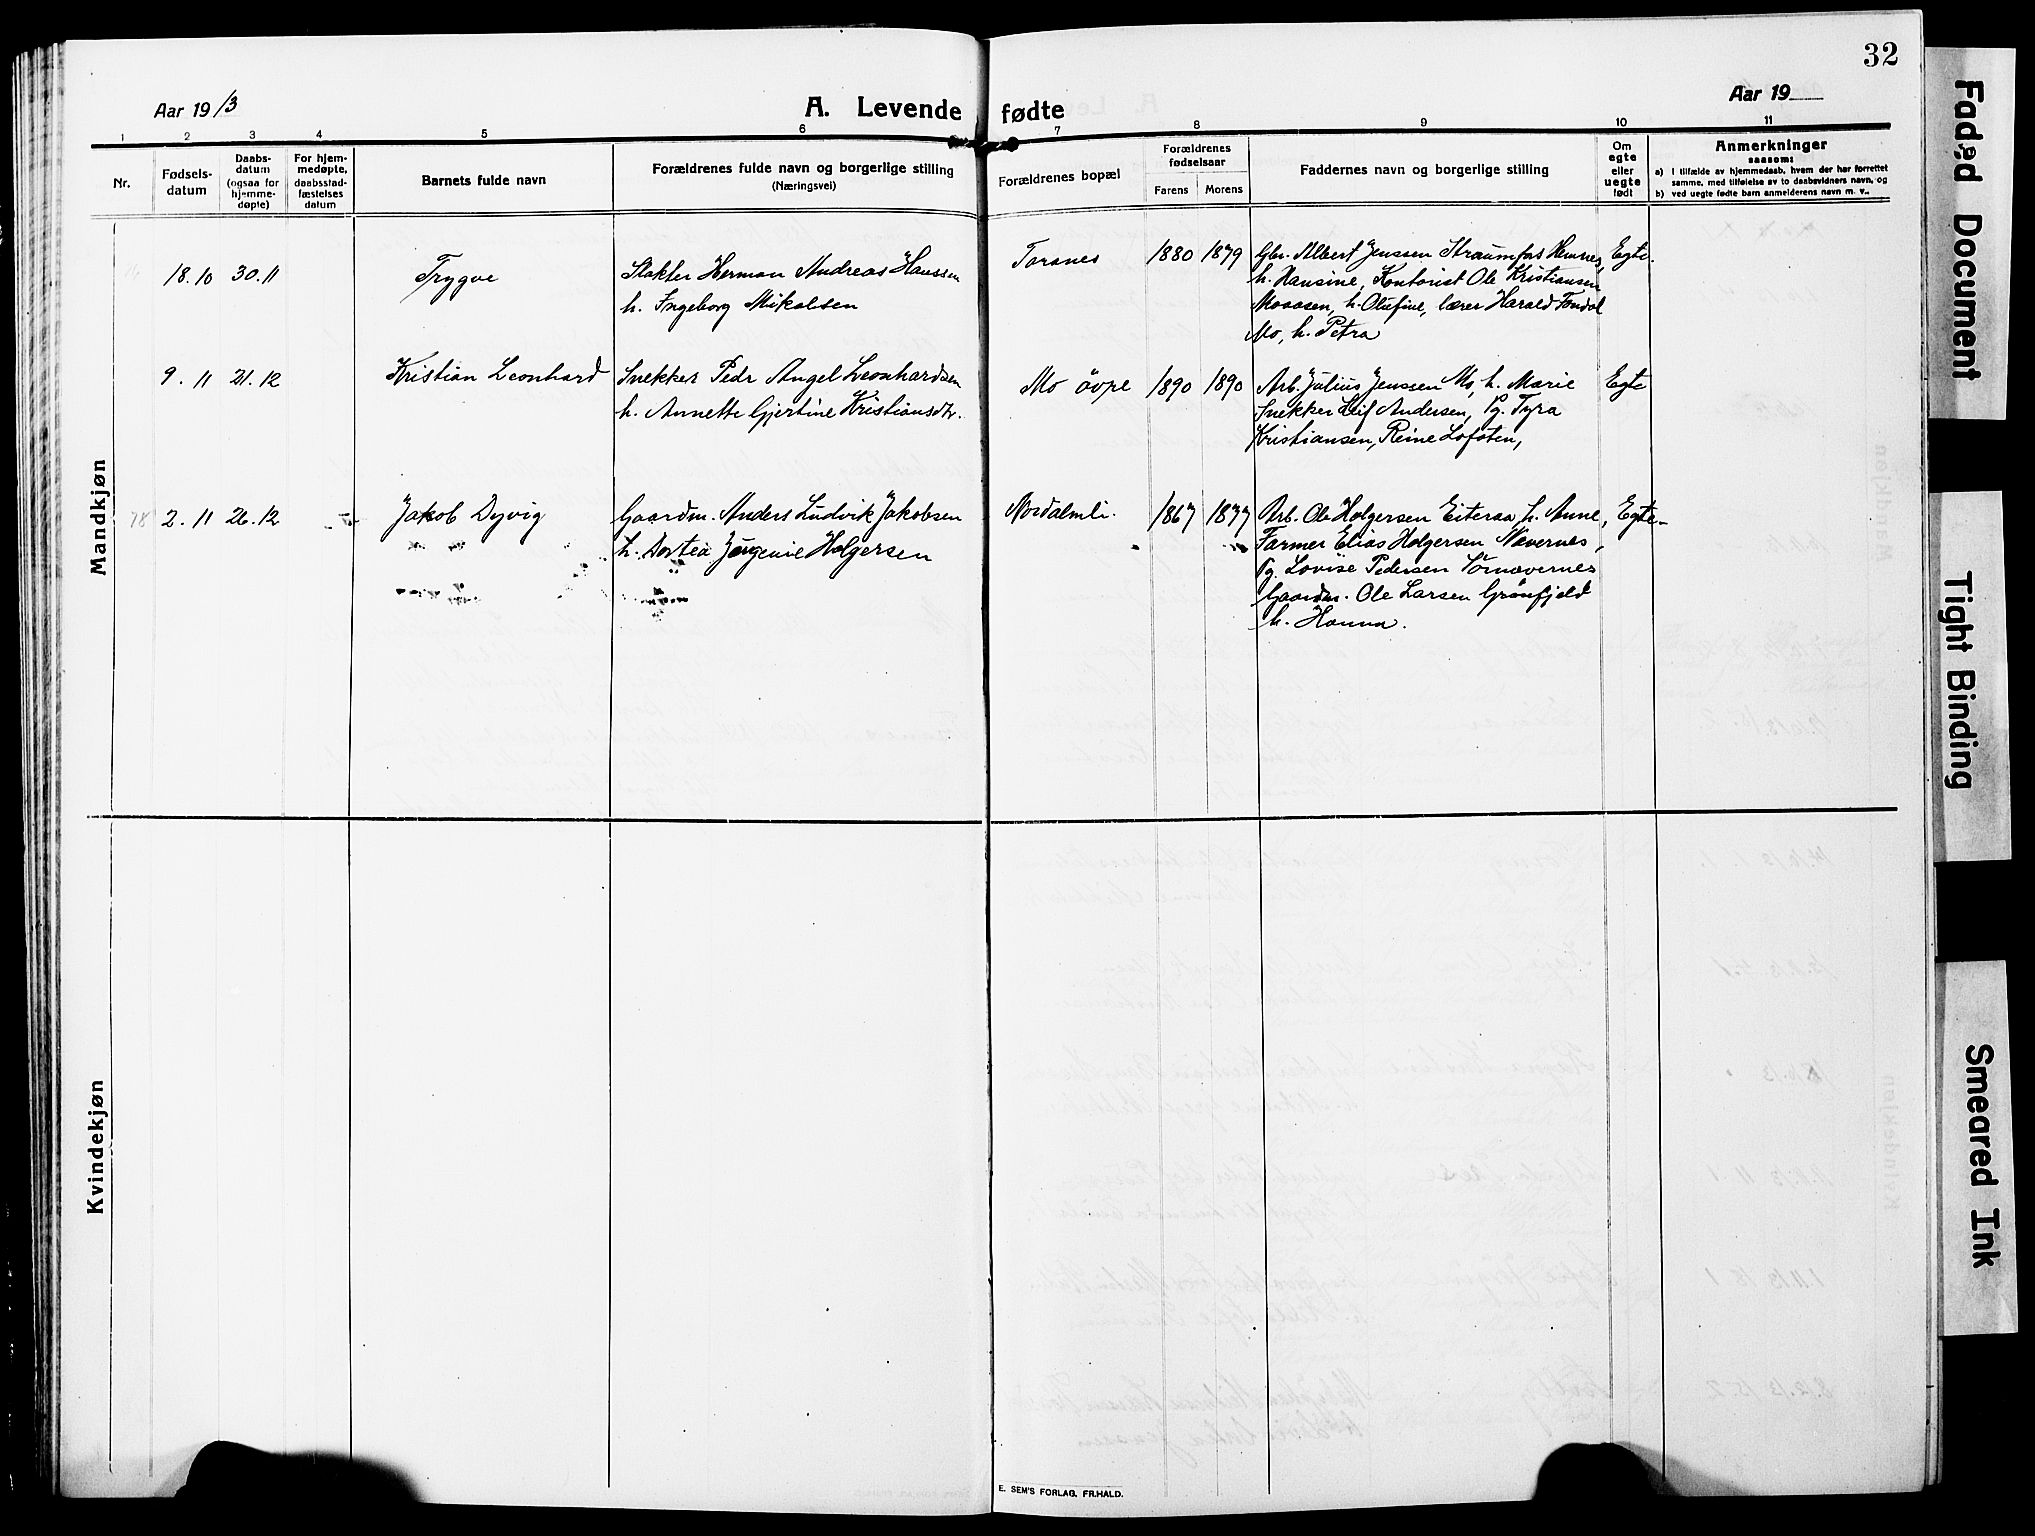 32
Aar 1913
A. Levende fødte
Aar 19
1 2 3 4 5 6 7 8 9 10 11
Nr.
Fødsels-
datum
Daabs-
datum
(ogsaa for
hjemme-
døpte)
For hjem-
medøpte,
daabsstad-
fæstelses
datum
Barnets fulde navn
Forældrenes fulde navn og borgerlige stilling
(Næringsvei)
Forældrenes bopæl
Forældrenes
fødselsaar
Farens Morens
Faddernes navn og borgerlige stilling
Om
egte
eller
uegte
født
Anmerkninger
saasom:
a) I tilfælde av hjemmedaab, hvem der har forrettet
samme, med tilføielse av to daabsvidners navn, og
b) ved uegte fødte barn anmelderens navn m. v..
Mandkjøn
18.10 30.11 Trygve
Slakter Herman Andreas Hanssen
h. Ingeborg Mikalsen
Toranes 1880 1879
Gbr. Albert Jenssen Straumfors Hemnes,
h. Hansine, Kontorist Ole Kristiansen
Mosaasen, h. Olufine, lærer Harald Tondal
Mo, h. Petra
Egte.
9.11 21.12 Kristian Leonhard
Snekker Pedr Angel Leonhardsen
h. Annette Gjertine Kristiansdtr.
Mo övre 1890 1890
Arb. Julius Jenssen Mo, h. Marie
Snekker Leif Andersen, Pg. Tyra
Kristiansen, Reine Lofoten,
Egte
78 2.11 26.12 Jakob Dyvig
Gaardm. Anders Ludvik Jakobsen
h. Dortea Jørgenie Holgersen
Nordalmli. 1867 1877
Arb. Ole Holgersen Eiteraa h. Anne,
Farmer Elias Holgersen Nævernes,
Pg. Lovise Pedersen Sörnævernes
Gaardm. Ole Larsen Grønfjeld
h. Hanna.
Egte
Kvindekjøn
E. SEM'S FORLAG, FR.HALD.
Faded Document
Tight Binding
Smeared Ink